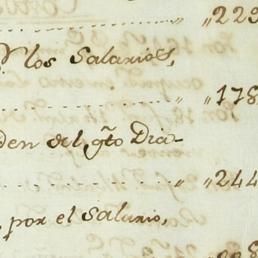 „229
Y los Salarios,
„178
den del gto Dia-
„244
por el Salario,